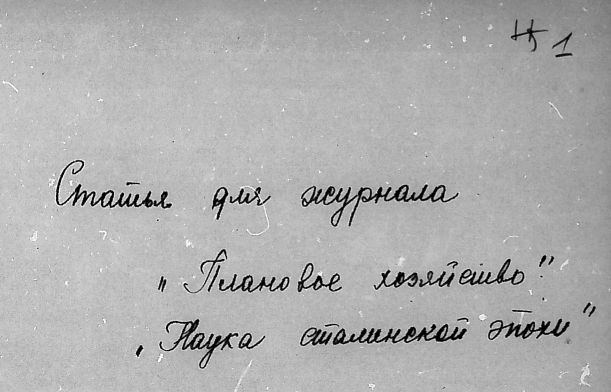 1
Статья для журнала
„Плановое хозяйство"
„Наука сталинской эпохи"